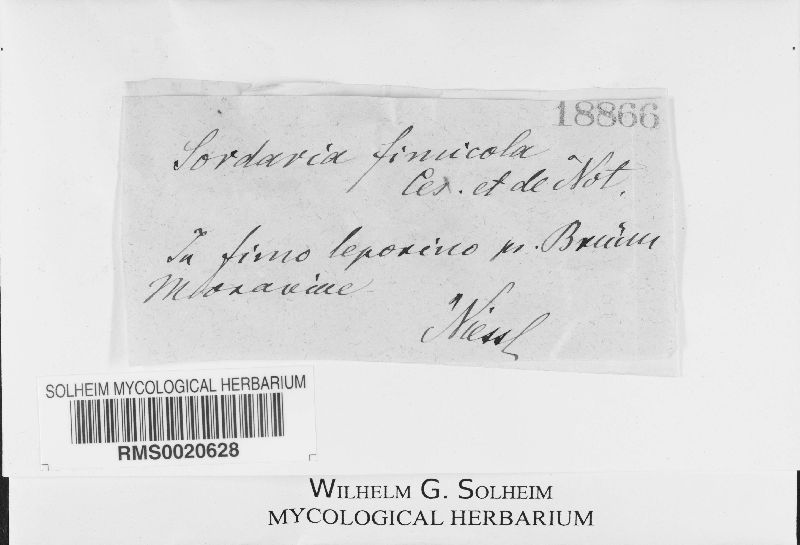 18866
Sordaria fimicola
Ces. et de Not.
In fimo leporino pr. Brünn
Moraviae
Niessl
SOLHEIM MYCOLOGICAL HERBARIUM
RMS0020628
WILHELM G. SOLHEIM
MYCOLOGICAL HERBARIUM